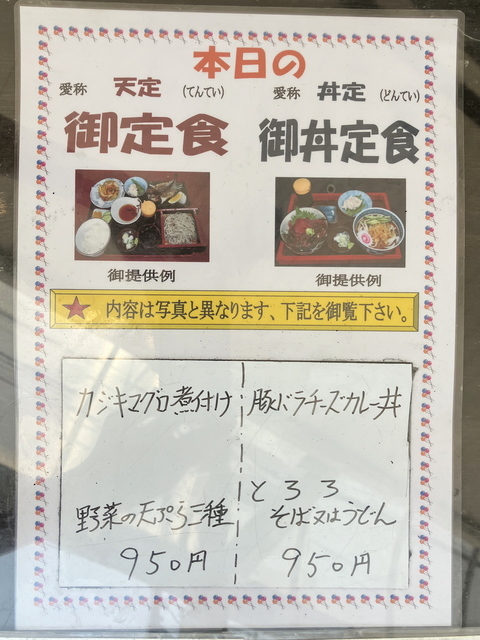 本日の
愛称 天定 (てんてい)
御定食
愛称 丼定 (どんてい)
御丼定食
御提供例
御提供例
★ 内容は写真と異なります、下記を御覧下さい。
カジキマグロ煮付け
野菜の天ぷら三種
950円
豚バラチーズカレー丼
とろろ
そば又はうどん
950円